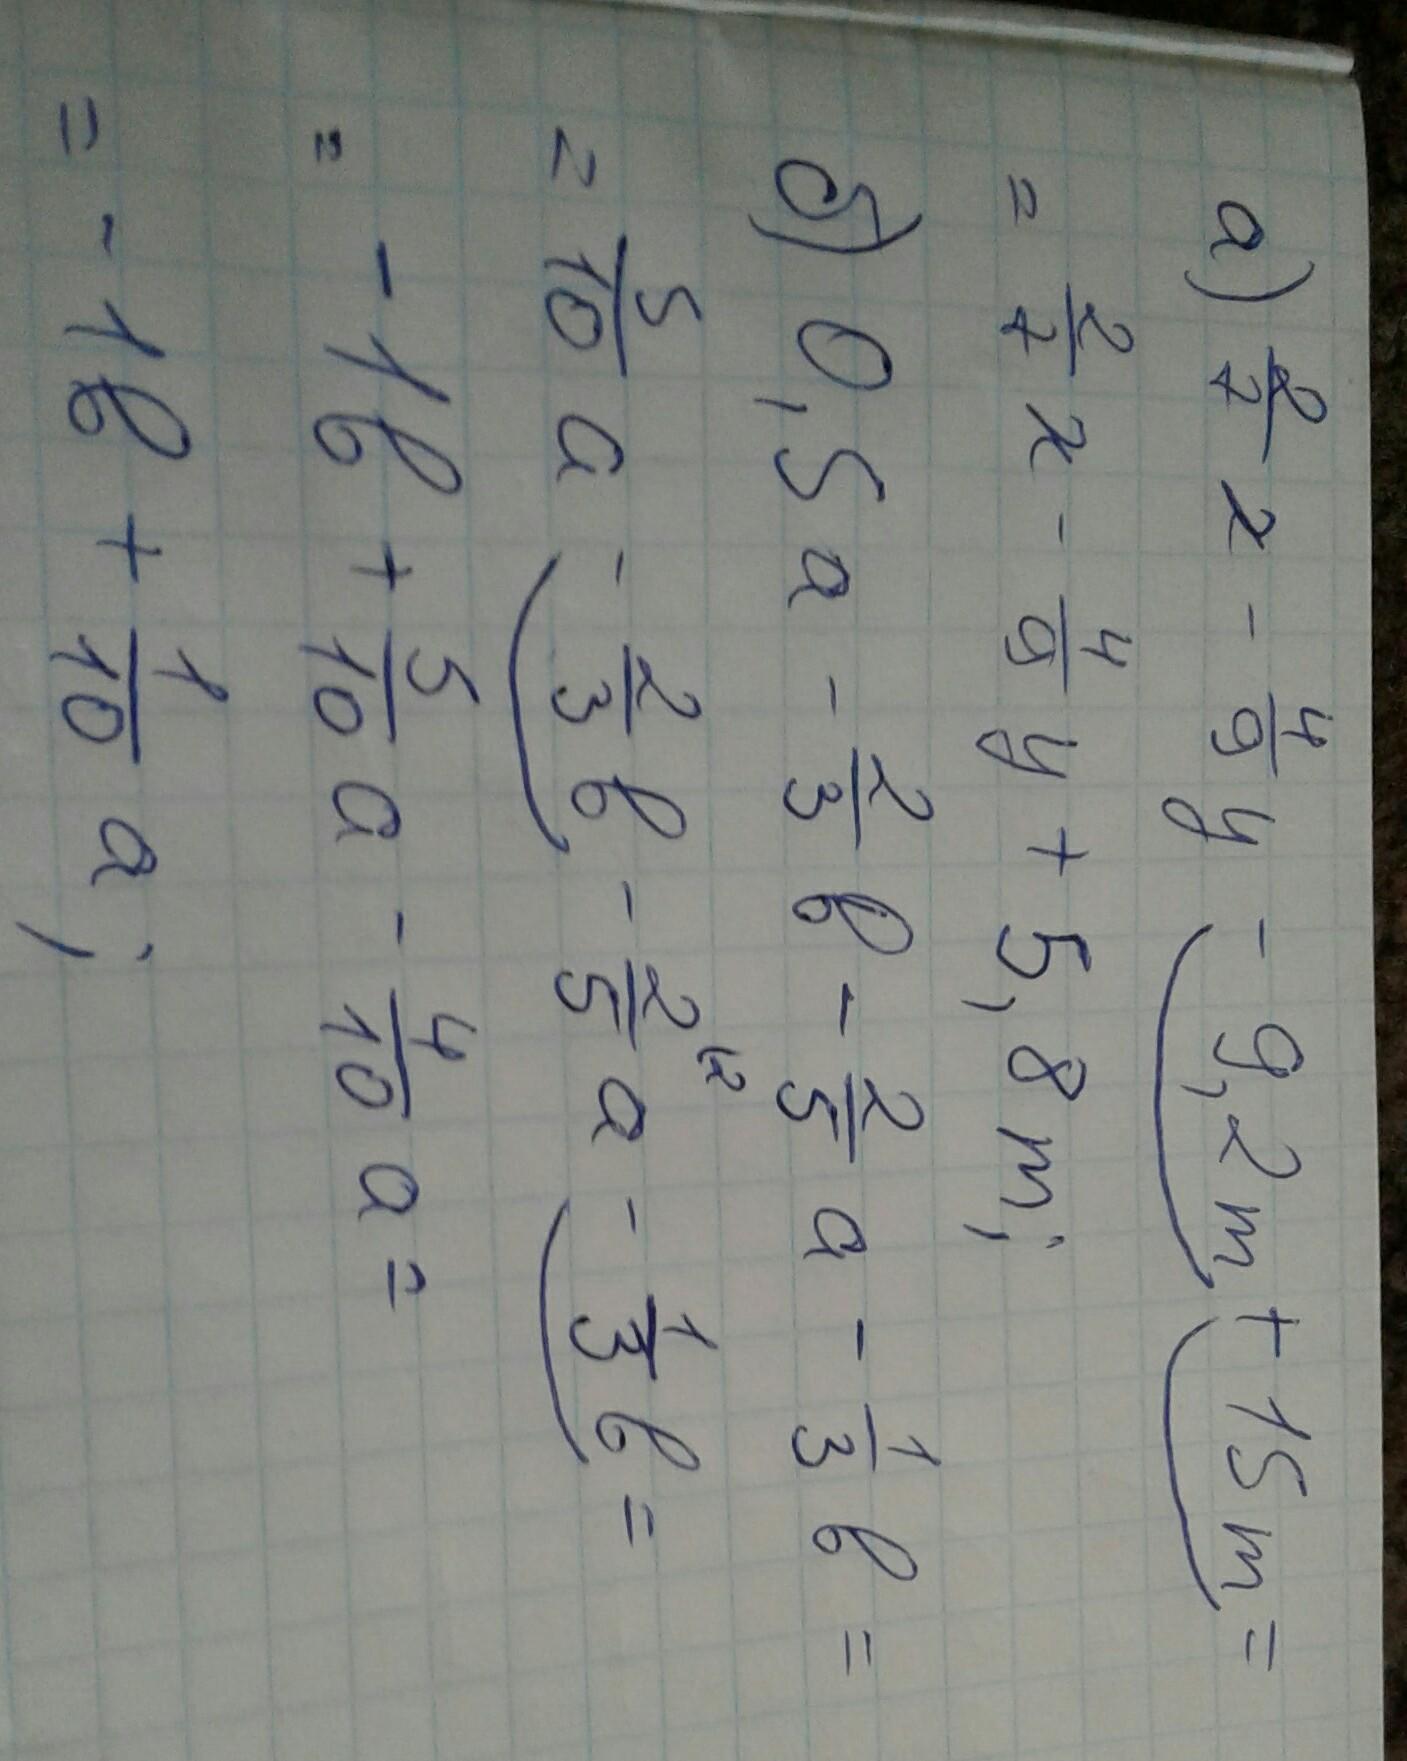 а) 2/7 x - 4/9 y - 9,2m + 15m =
= 2/7 x - 4/9 y + 5,8m;
б) 0,5a - 2/3 b - 2/5 a - 1/3 b =
= 5/10 a - 2/3 b - 2/5 (2 a - 1/3 b =
= -1b + 5/10 a - 4/10 a =
= -1b + 1/10 a;